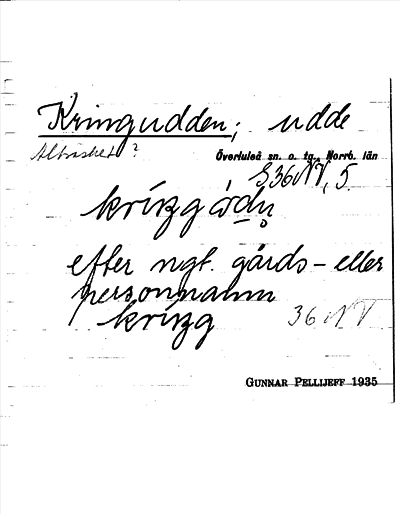 Kringudden; udde
Altraskat?
Överluleå sn. o. tg., Norrb. län
S. 36 NV, 5.
kríŋgọ́rdṇ
efter ngt. gårds- eller
personnamn
kríŋg 36 NV
GUNNAR PELLIJEFF 1935